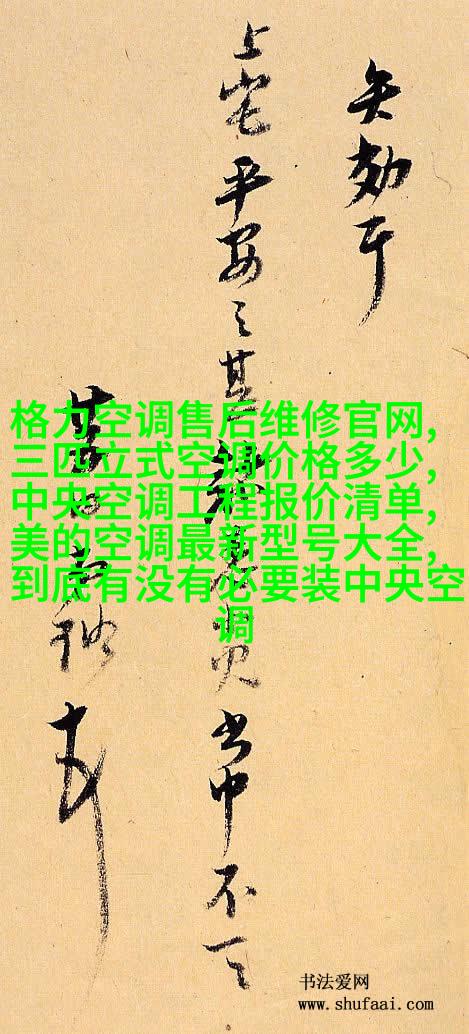 上宅平安之甚
書中不一一
格力空调售后维修官网,
三匹立式空调价格多少,
中央空调工程报价清单,
美的空调最新型号大全,
到底有没有必要装中央空
调
书法爱网
www.shufaai.com